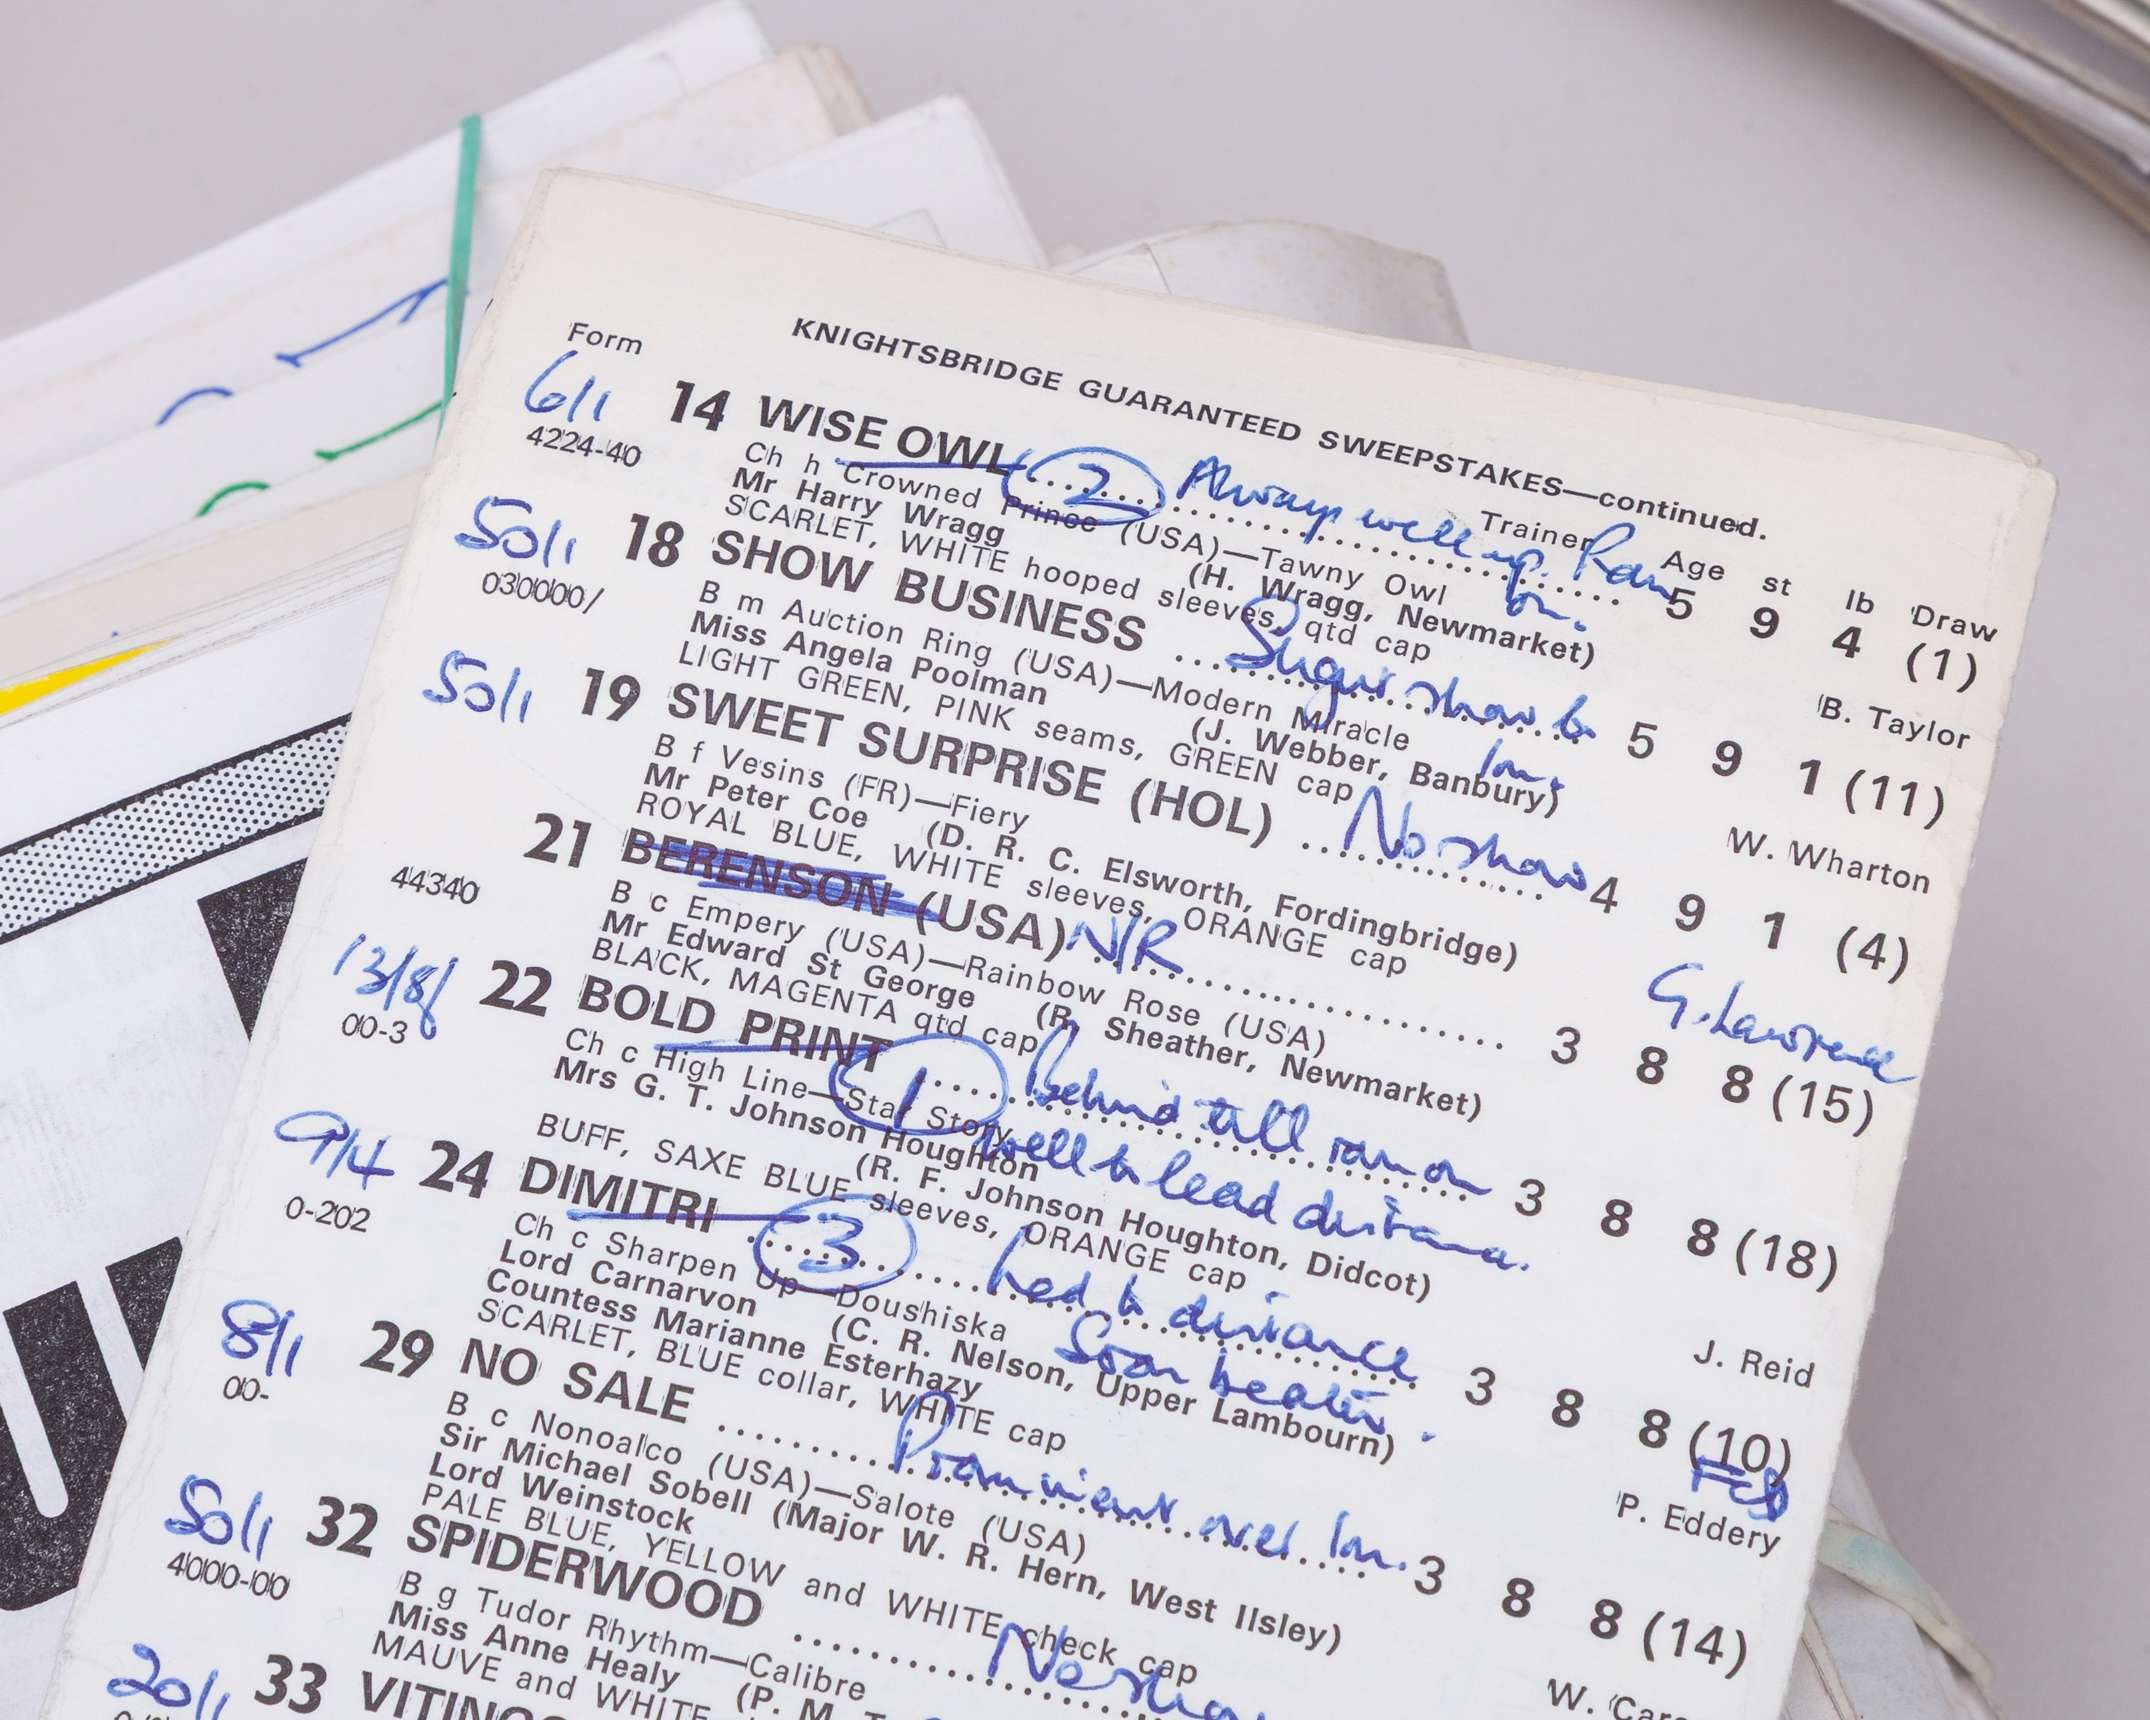 KNIGHTSBRIDGE GUARANTEED SWEEPSTAKES—continued.
Form Trainer Age st lb Draw
6/1 14 WISE OWL ② Always well up. Ran 5 9 4 (1)
4224-40 Ch h Crowned Prince (USA)—Tawny Owl on.
Mr Harry Wragg (H. Wragg, Newmarket)
SCARLET, WHITE hooped sleeves, qtd cap B. Taylor
50/1 18 SHOW BUSINESS show 5 9 1 (11)
030000/ B m Auction Ring (USA)—Modern Miracle
Miss Angela Poolman (J. Webber, Banbury)
LIGHT GREEN, PINK seams, GREEN cap W. Wharton
50/1 19 SWEET SURPRISE (HOL) No show 4 9 1 (4)
B f Vesins (FR)—Fiery
Mr Peter Coe (D. R. C. Elsworth, Fordingbridge)
ROYAL BLUE, WHITE sleeves, ORANGE cap G. Lawrence
21 BERENSON (USA) N/R 3 8 8 (15)
44340 B c Empery (USA)—Rainbow Rose (USA)
Mr Edward St George (R. Sheather, Newmarket)
BLACK, MAGENTA qtd cap
13/8/ 22 BOLD PRINT ① Behind till ran on 3 8 8 (18)
00-3 Ch c High Line—Star Story well to lead distance.
Mrs G. T. Johnson Houghton
(R. F. Johnson Houghton, Didcot)
BUFF, SAXE BLUE sleeves, ORANGE cap J. Reid
9/4 24 DIMITRI ③ Led to distance 3 8 8 (10)
0-202 Ch c Sharpen Up—Doushiska Soon beaten.
Lord Carnarvon (C. R. Nelson, Upper Lambourn)
Countess Marianne Esterhazy
SCARLET, BLUE collar, WHITE cap P. Eddery
8/1 29 NO SALE Prominent over 3 8 8 (14)
00- B c Nonoalco (USA)—Salote (USA)
Sir Michael Sobell (Major W. R. Hern, West Ilsley)
Lord Weinstock
PALE BLUE, YELLOW and WHITE check cap W.
50/1 32 SPIDERWOOD No show
4000-00 B g Tudor Rhythm—Calibre
Miss Anne Healy (P. M.
MAUVE and WHITE
20/1 33